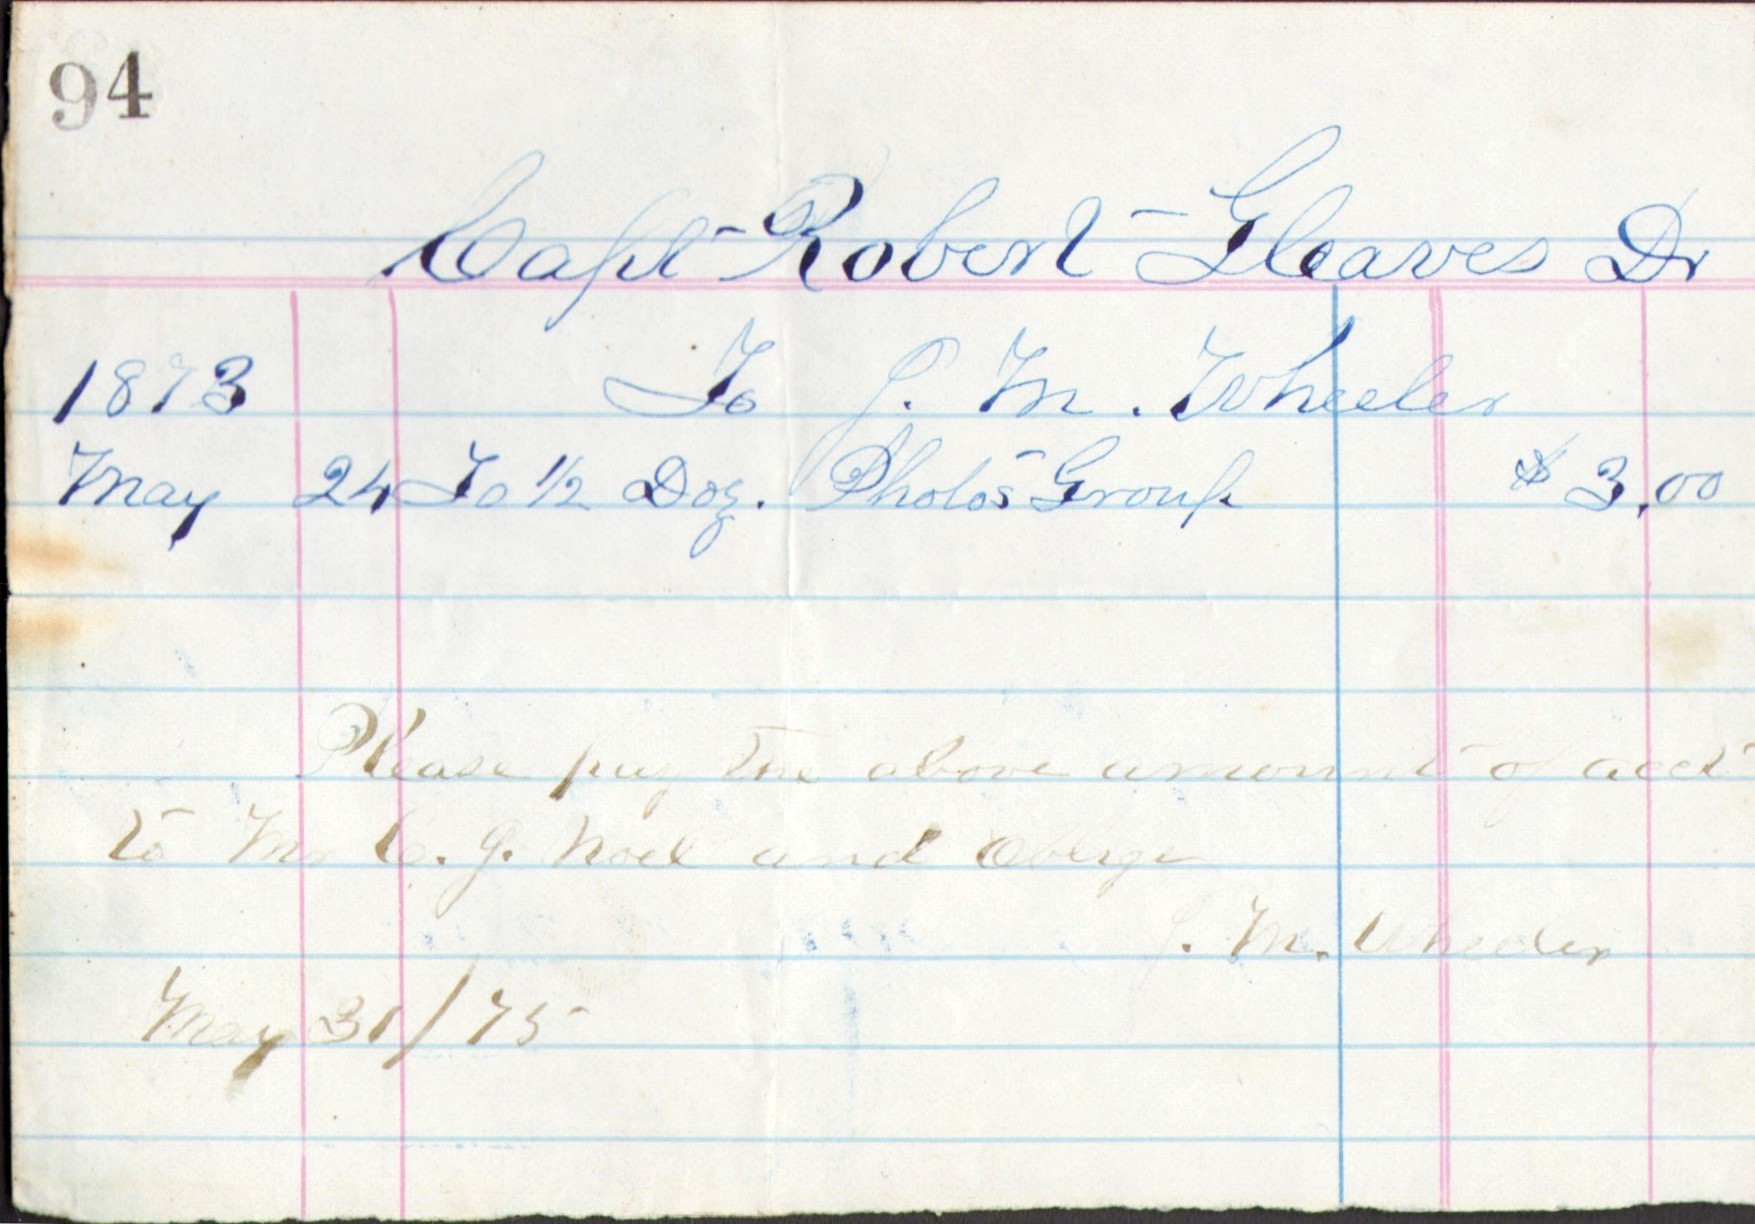 94
Capt Robert Gleaves Dr
1873 To J. M. Wheeler
May 24 To 1/2 Doz. Photos Group $3.00
Please pay the above amount of acct
to Mr C. J. Noel and oblige
J. M. Wheeler
May 31/75